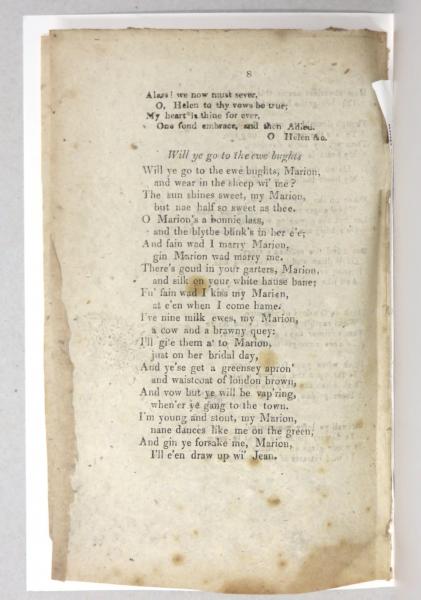 8
Alass! we now must sever,
O, Helen to thy vows be true;
My heart is thine for ever,
One fond embrace, and then Adieu.
O Helen &c.
Will ye go to the ewe bughts
Will ye go to the ewe bughts, Marion,
and wear in the sheep wi' me?
The sun shines sweet, my Marion,
but nae half so sweet as thee.
O Marion's a bonnie lass,
and the blythe blink's in her e'e;
And fain wad I marry Marion,
gin Marion wad marry me.
There's goud in your garters, Marion,
and silk on your white hause bane;
Fu' fain wad I kiss my Marien,
at e'en when I come hame.
I've nine milk ewes, my Marion,
a cow and a brawny quey:
I'll gi'e them a' to Marion,
just on her bridal day,
And ye'se get a greensey apron'
and waistcoat of london brown,
And vow but ye will be vap'ring,
when'er ye gang to the town.
I'm young and stout, my Marion,
nane dances like me on the green;
And gin ye forsake me, Marion,
I'll e'en draw up wi' Jean.